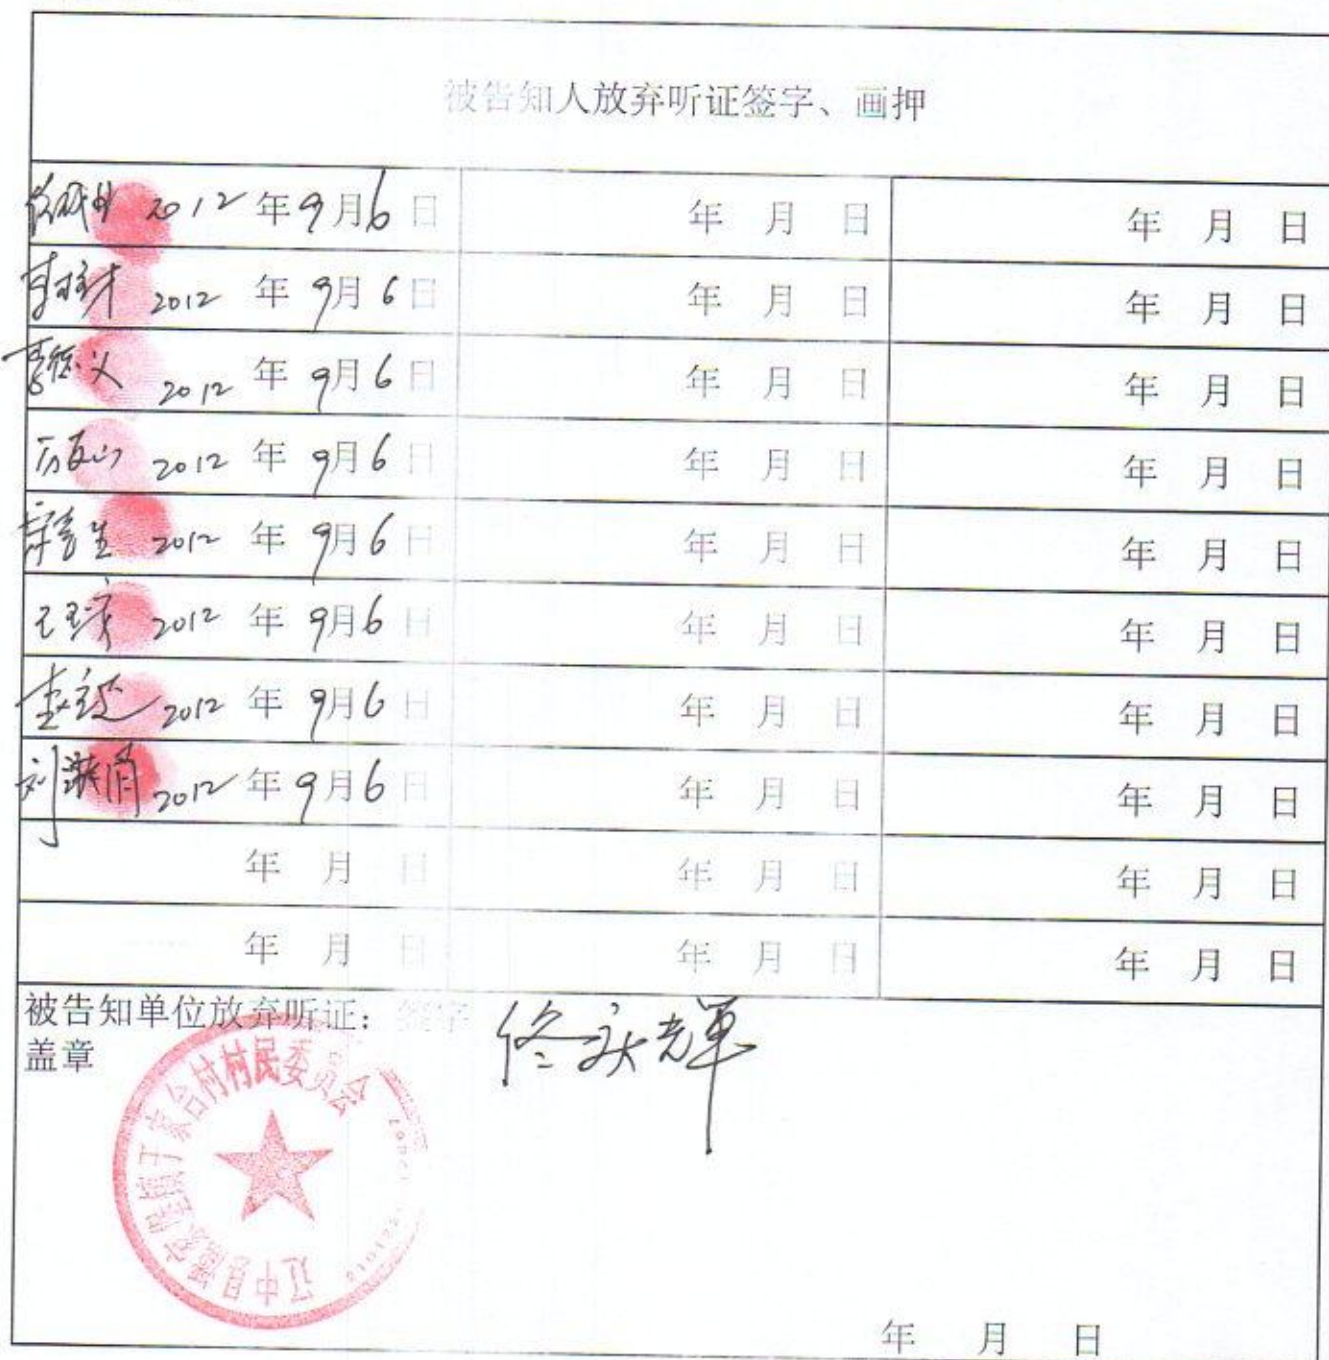 被告知人放弃听证签字、画押
2012年9月6日 年 月 日 年 月 日
2012 年 9月6日 年 月 日 年 月 日
李德义 2012 年 9月6日 年 月 日 年 月 日
2012 年 9月6日 年 月 日 年 月 日
2012 年 9月6日 年 月 日 年 月 日
2012 年 9月6日 年 月 日 年 月 日
2012 年 9月6日 年 月 日 年 月 日
刘洪清 2012年9月6日 年 月 日 年 月 日
年 月 日 年 月 日 年 月 日
年 月 日 年 月 日 年 月 日
被告知单位放弃听证：签字 佟庆光军
盖章
辽中县潘家堡镇于家台村村民委员会
年 月 日